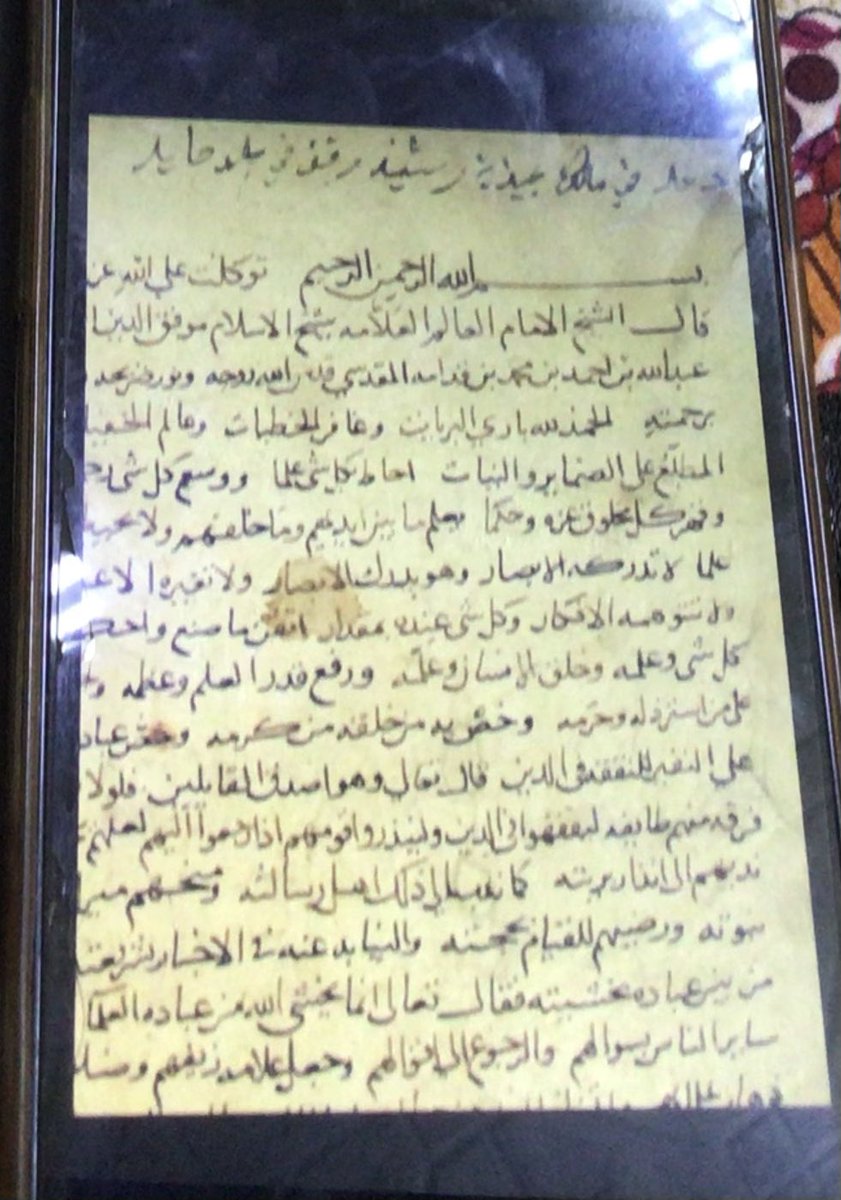 في ملك عبيد بن رشيد وقف في بلد حايل
بسم الله الرحمن الرحيم توكلت علي الله
قال الشيخ الامام العالم العلامه شيخ الاسلام موفق الدين
عبدالله بن احمد بن محمد بن قدامه المقدسي قدس الله روحه ونور ضريحه
برحمته الحمد لله باري البريات وغافر الخطيات وعالم الخفيات
المطلع على الضماير والنيات احاط بكل شي علما ووسع كل شي
وقهر كل مخلوق عزه وحكما يعلم ما بين ايديهم وما خلفهم ولا
علما لا تدركه الابصار وهو يدرك الابصار ولا تغيره
ولا تتوهمه الافكار وكل شي عنده بمقدار اتقن ما صنع واحكمه
كل شي وعلمه وخلق الانسان وعلمه ورفع قدر العلم وعظمه
على من استرذله وحرمه وخص به من خلقه من كرمه وحض عباده
علي النفير للتفقه في الدين قال تعالي وهو اصدق القايلين فلولا
فرقه منهم طايفه ليتفقهوا في الدين ولينذروا قومهم اذا رجعوا اليهم لعلهم
ندبهم الى انذار بريته كما ندب الي ذلك اهل رسالته ومنحهم ميراث
نبوته ورضيهم للقيام بحجته والنيابه عنه في الاخبار بشريعته
من بين عباده بخشيته فقال تعالى انما يخشى الله من عباده العلما
ساير الناس بسوالهم والرجوع الى اقوالهم وجعل علامه زيغهم